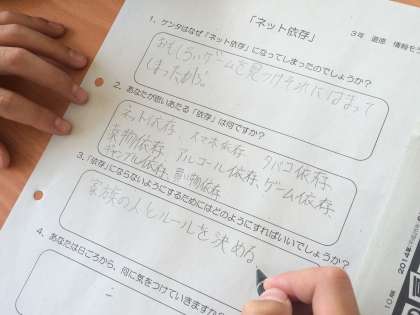 「ネット依存」
3年 道徳 情報モラ
1、ケンタはなぜ「ネット依存」になってしまったのでしょうか?
おもしろいゲームを見つけそれにはまって
しまったから。
2、あなたが思いあたる「依存」は何ですか?
ネット依存、スマホ依存、タバコ依存、
薬物依存、アルコール依存、ゲーム依存、
ギャンブル依存、買い物依存
3、「依存」にならないようにするためにはどのようにすればいいでしょうか?
家族の人とルールを決める
4、あなたは日ごろから、何に気をつけていきますか
2014年